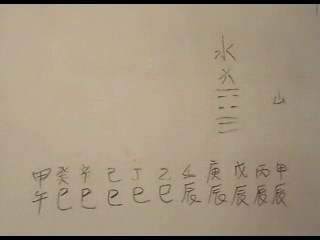 水
火
山
甲癸辛己丁乙庚戊丙甲
午巳巳巳巳巳辰辰辰辰辰